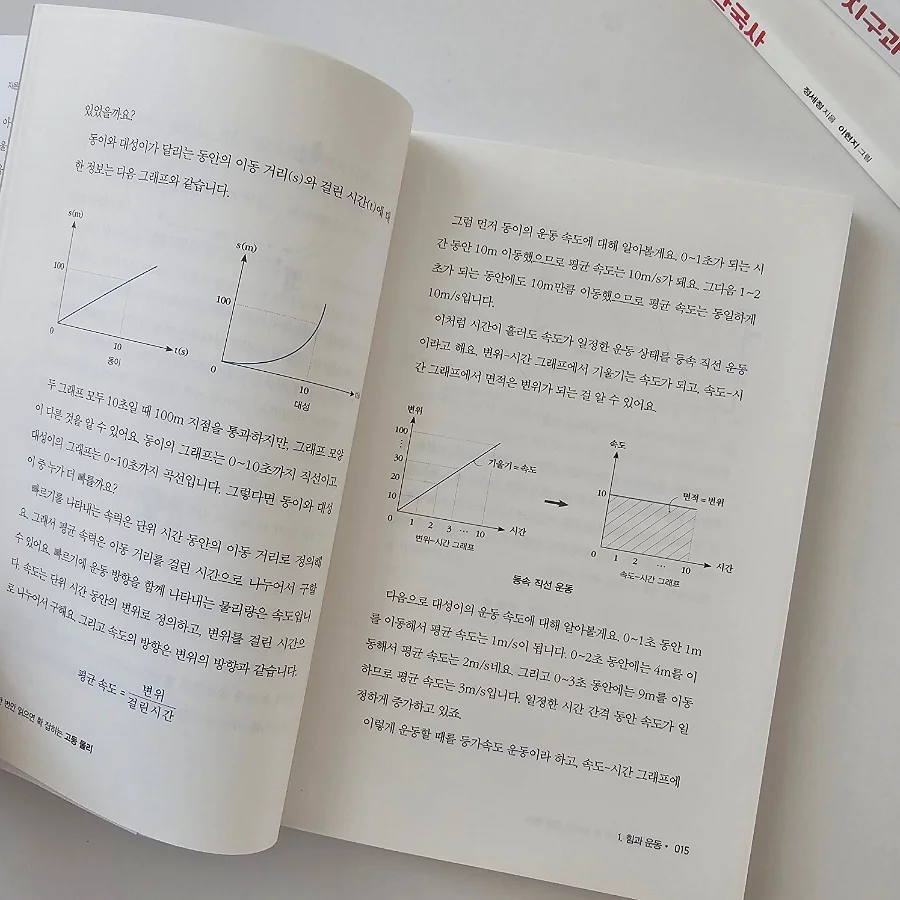 있었을까요?
동이와 대성이가 달리는 동안의 이동 거리(s)와 걸린 시간(t)에 대
한 정보는 다음 그래프와 같습니다.
s(m)
100
0
10
t(s)
동이
s(m)
100
0
10
대성
두 그래프 모두 10초일 때 100m 지점을 통과하지만, 그래프 모양
이 다른 것을 알 수 있어요. 동이의 그래프는 0~10초까지 직선이고
대성이의 그래프는 0~10초까지 곡선입니다. 그렇다면 동이와 대성
이 중 누가 더 빠를까요?
빠르기를 나타내는 속력은 단위 시간 동안의 이동 거리로 정의해
요. 그래서 평균 속력은 이동 거리를 걸린 시간으로 나누어서 구할
수 있어요. 빠르기에 운동 방향을 함께 나타내는 물리량은 속도입니
다. 속도는 단위 시간 동안의 변위로 정의하고, 변위를 걸린 시간으
로 나누어서 구해요. 그리고 속도의 방향은 변위의 방향과 같습니다.
평균 속도 = 변위
걸린 시간
한 번만 읽으면 확 잡히는 고등 물리
그럼 먼저 동이의 운동 속도에 대해 알아볼게요. 0~1초가 되는 시
간 동안 10m 이동했으므로 평균 속도는 10m/s가 돼요. 그다음 1~2
초가 되는 동안에도 10m만큼 이동했으므로 평균 속도는 동일하게
10m/s입니다.
이처럼 시간이 흘러도 속도가 일정한 운동 상태를 등속 직선 운동
이라고 해요. 변위-시간 그래프에서 기울기는 속도가 되고, 속도-시
간 그래프에서 면적은 변위가 되는 걸 알 수 있어요.
변위
100
⋮
30
20
10
0
1 2 3 … 10
시간
기울기=속도
변위-시간 그래프
속도
10
0
1 2 … 10
시간
면적=변위
속도-시간 그래프
등속 직선 운동
다음으로 대성이의 운동 속도에 대해 알아볼게요. 0~1초 동안 1m
를 이동해서 평균 속도는 1m/s이 됩니다. 0~2초 동안에는 4m를 이
동해서 평균 속도는 2m/s네요. 그리고 0~3초 동안에는 9m를 이동
하므로 평균 속도는 3m/s입니다. 일정한 시간 간격 동안 속도가 일
정하게 증가하고 있죠.
이렇게 운동할 때를 등가속도 운동이라 하고, 속도-시간 그래프에
1. 힘과 운동 • 015
한국사
정세정 지음 이현지 그림
지구과